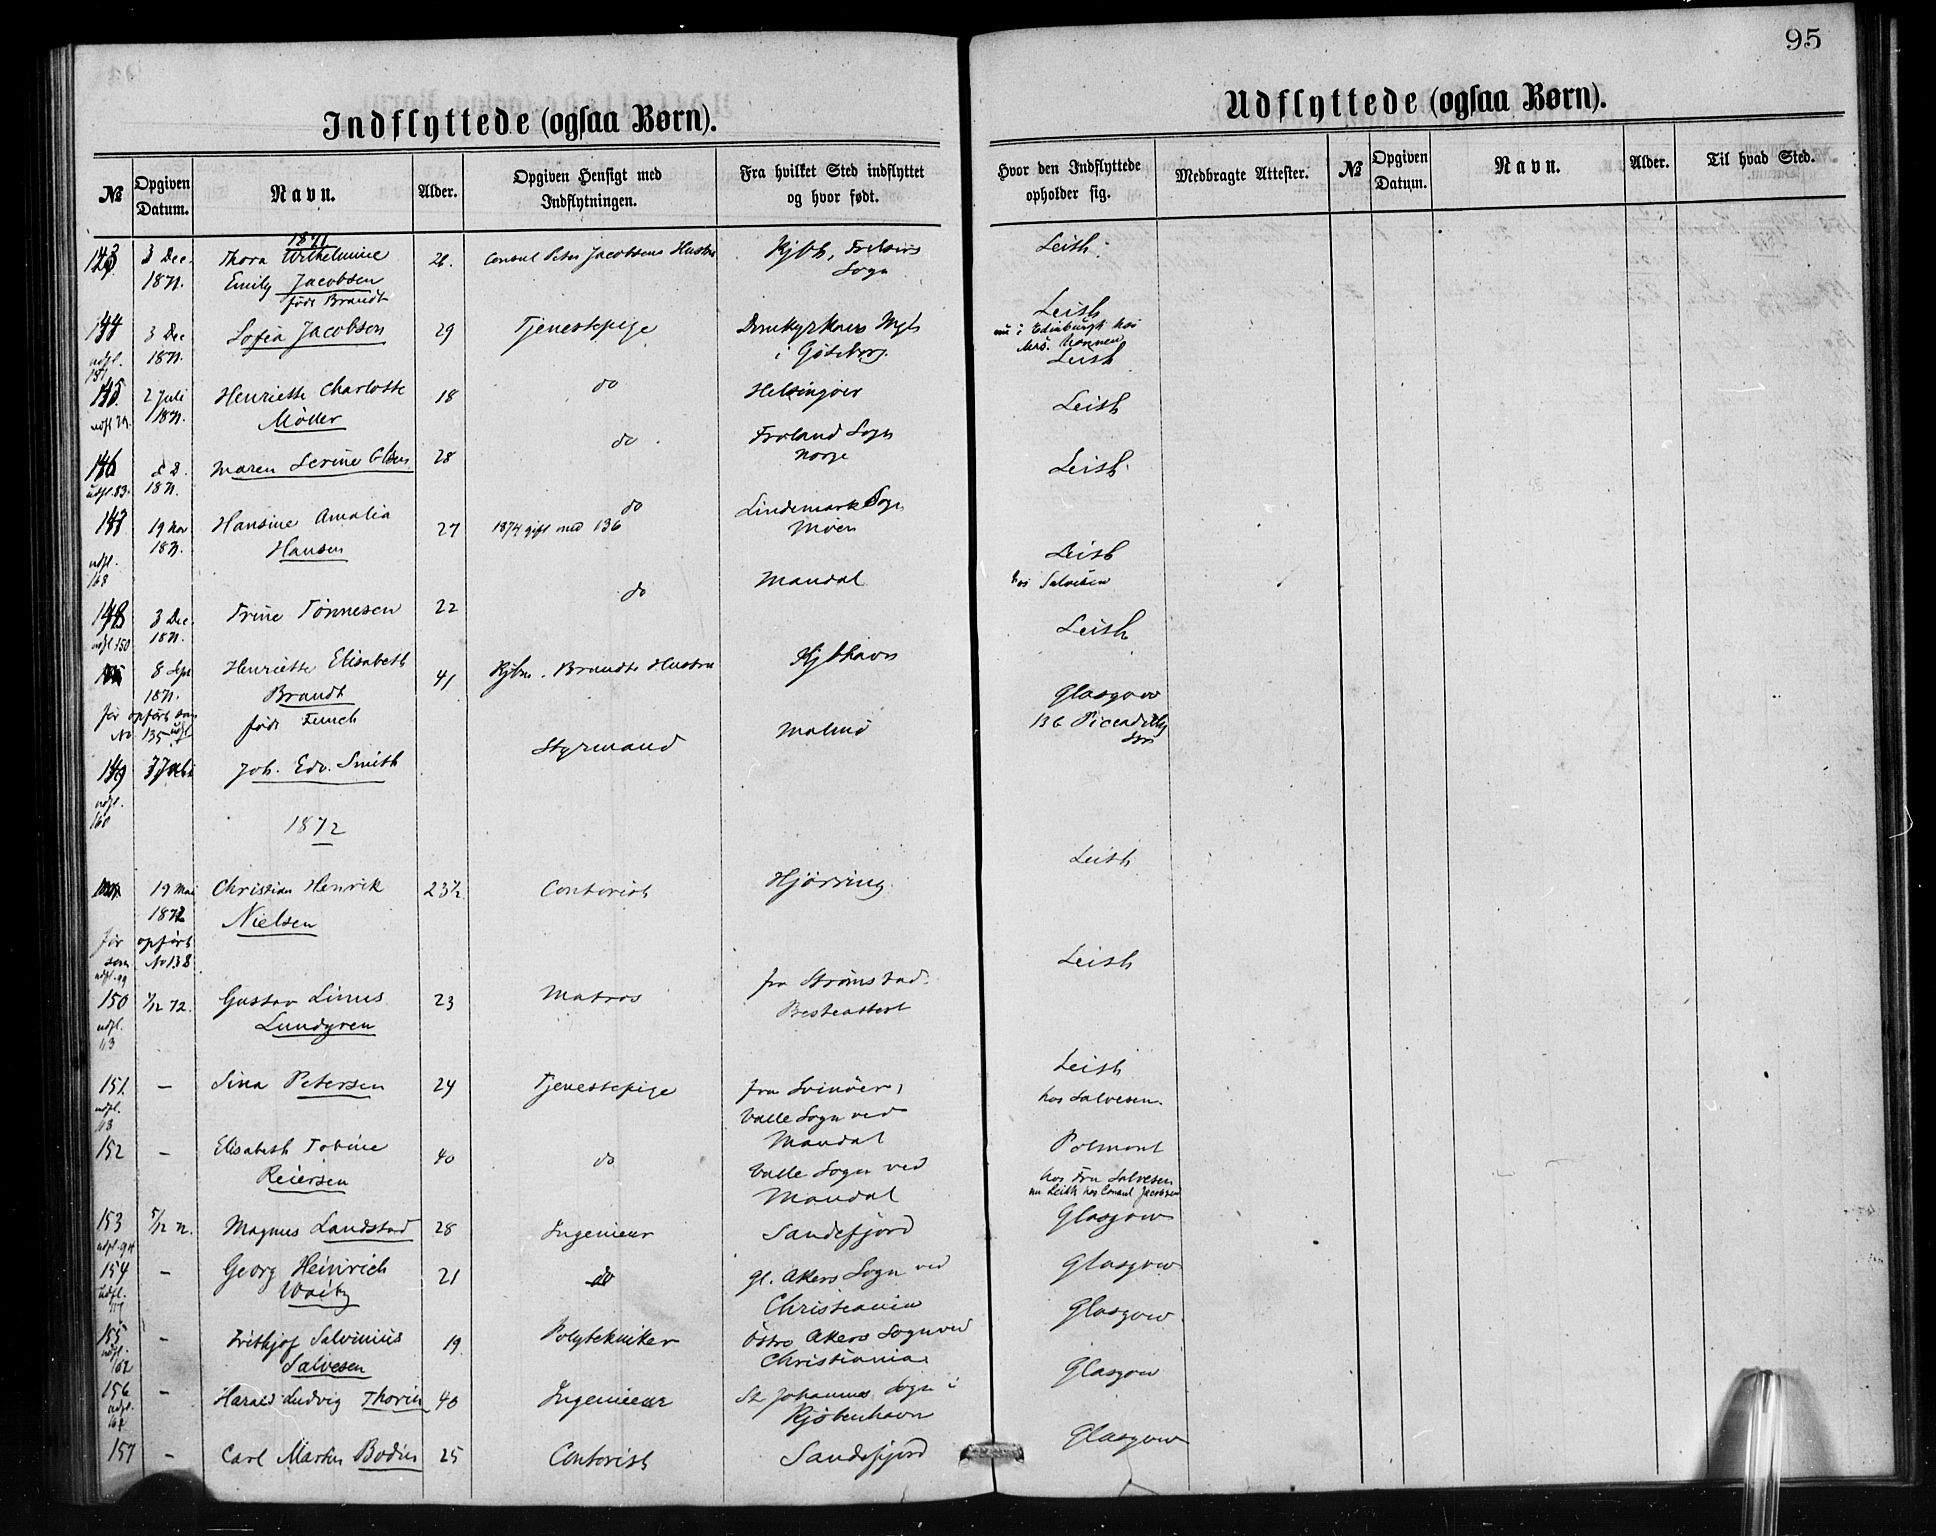 95
Indflyttede (ogsaa Børn).
Udflyttede (ogsaa Børn).
№ Opgiven Datum. Navn. Alder. Opgiven Hensigt med Indflytningen. Fra hvilket Sted indflyttet og hvor født. Hvor den Indflyttede opholder sig. Medbragte Attester. № Opgiven Datum. Navn. Alder. Til hvad Sted.
1871
143 3 Dec. Thora Wilhelmine 26. Consul Peter Jacobsens Hustru Kjbh, Frelsers Leith.
1871. Emily Jacobsen Sogn
født Brandt
144 3 Dec Sofia Jacobson 29 Tjenestepige Domkyrkans Leith
udfl. 1871. i Göteborg. nu i Edinburgh hos
Mrs.
145. 2 Juli Henriette Charlotte 18 do Helsingøer Leith
1871. Møller
146 d D. Maren Serine Olsen 28 do. Froland Sogn Leith
udfl. 83. 1871. Norge
147 19 Nov Hansine Amalia 27 do Lindemark Sogn Leith.
1871. Hansen 1874 gift med 136 Møen
udfl.
168
148 3 Dec. Trine Tønnesen 22 do Mandal Leith
udfl 150 1871. hos Salvesen
8 Sep Henriette Elisabeth 41 Kjbm. Brandts Hustru Kjbhavn Leith
1871. Brandt
før opført som født Funch
No 135
149 Joh. Edv. Smith Styrmand Malmö Glasgow
udfl. 136 Piccadilly
160 Str
1872
19 Mai Christian Henrik 23½ Contorist Hjørring Leith
1872 Nielsen
før opført
som No 138
udfl. 99
150 1/12 72. Gustav Linus 23 Matros fra Strömstad. Leith
udfl. Lundgren
113
151. — Sina Petersen 24 Tjenestepige fra Svinöer, Leith
udfl. Valle Sogn ved hos Salvesen.
113 Mandal
152 — Elisabeth Tobine 40 do Valle Sogn ved Polmont
Reiersen Mandal hos Fru Salvesen
nu Leith hos Consul Jacobsen
153 5/12 72. Magnus Landstad 28 Ingenieur Sandefjord Glasgow
udfl. 94
154 — Georg Heinrich 21 do gl. Akers Sogn ved Glasgow
udfl. Christiania
155 — Frithjof Salvinius 19. Polytekniker Östre Akers Sogn ved Glasgow
udfl. Salvesen Christiania
162
156 — Harald Ludvig Thorin 40 Ingenieur St Johannes Sogn i Glasgow
udfl. Kjöbenhavn
157 — Carl Martin Bodin 25 Contorist Sandefjord Glasgow